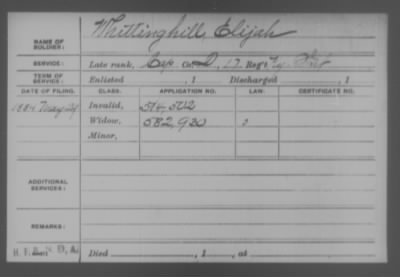 NAME OF SOLDIER: Whittinghill, Elijah
SERVICE: Late rank, Cap. Co. D, 17, Reg't Ky. Inf
TERM OF SERVICE: Enlisted , 1 Discharged , 1
DATE OF FILING. CLASS. APPLICATION NO. LAW. CERTIFICATE NO.
1884 May 24 Invalid, 514,502
Widow, 582,920
Minor,
ADDITIONAL SERVICES:
REMARKS:
Died , 1 , at